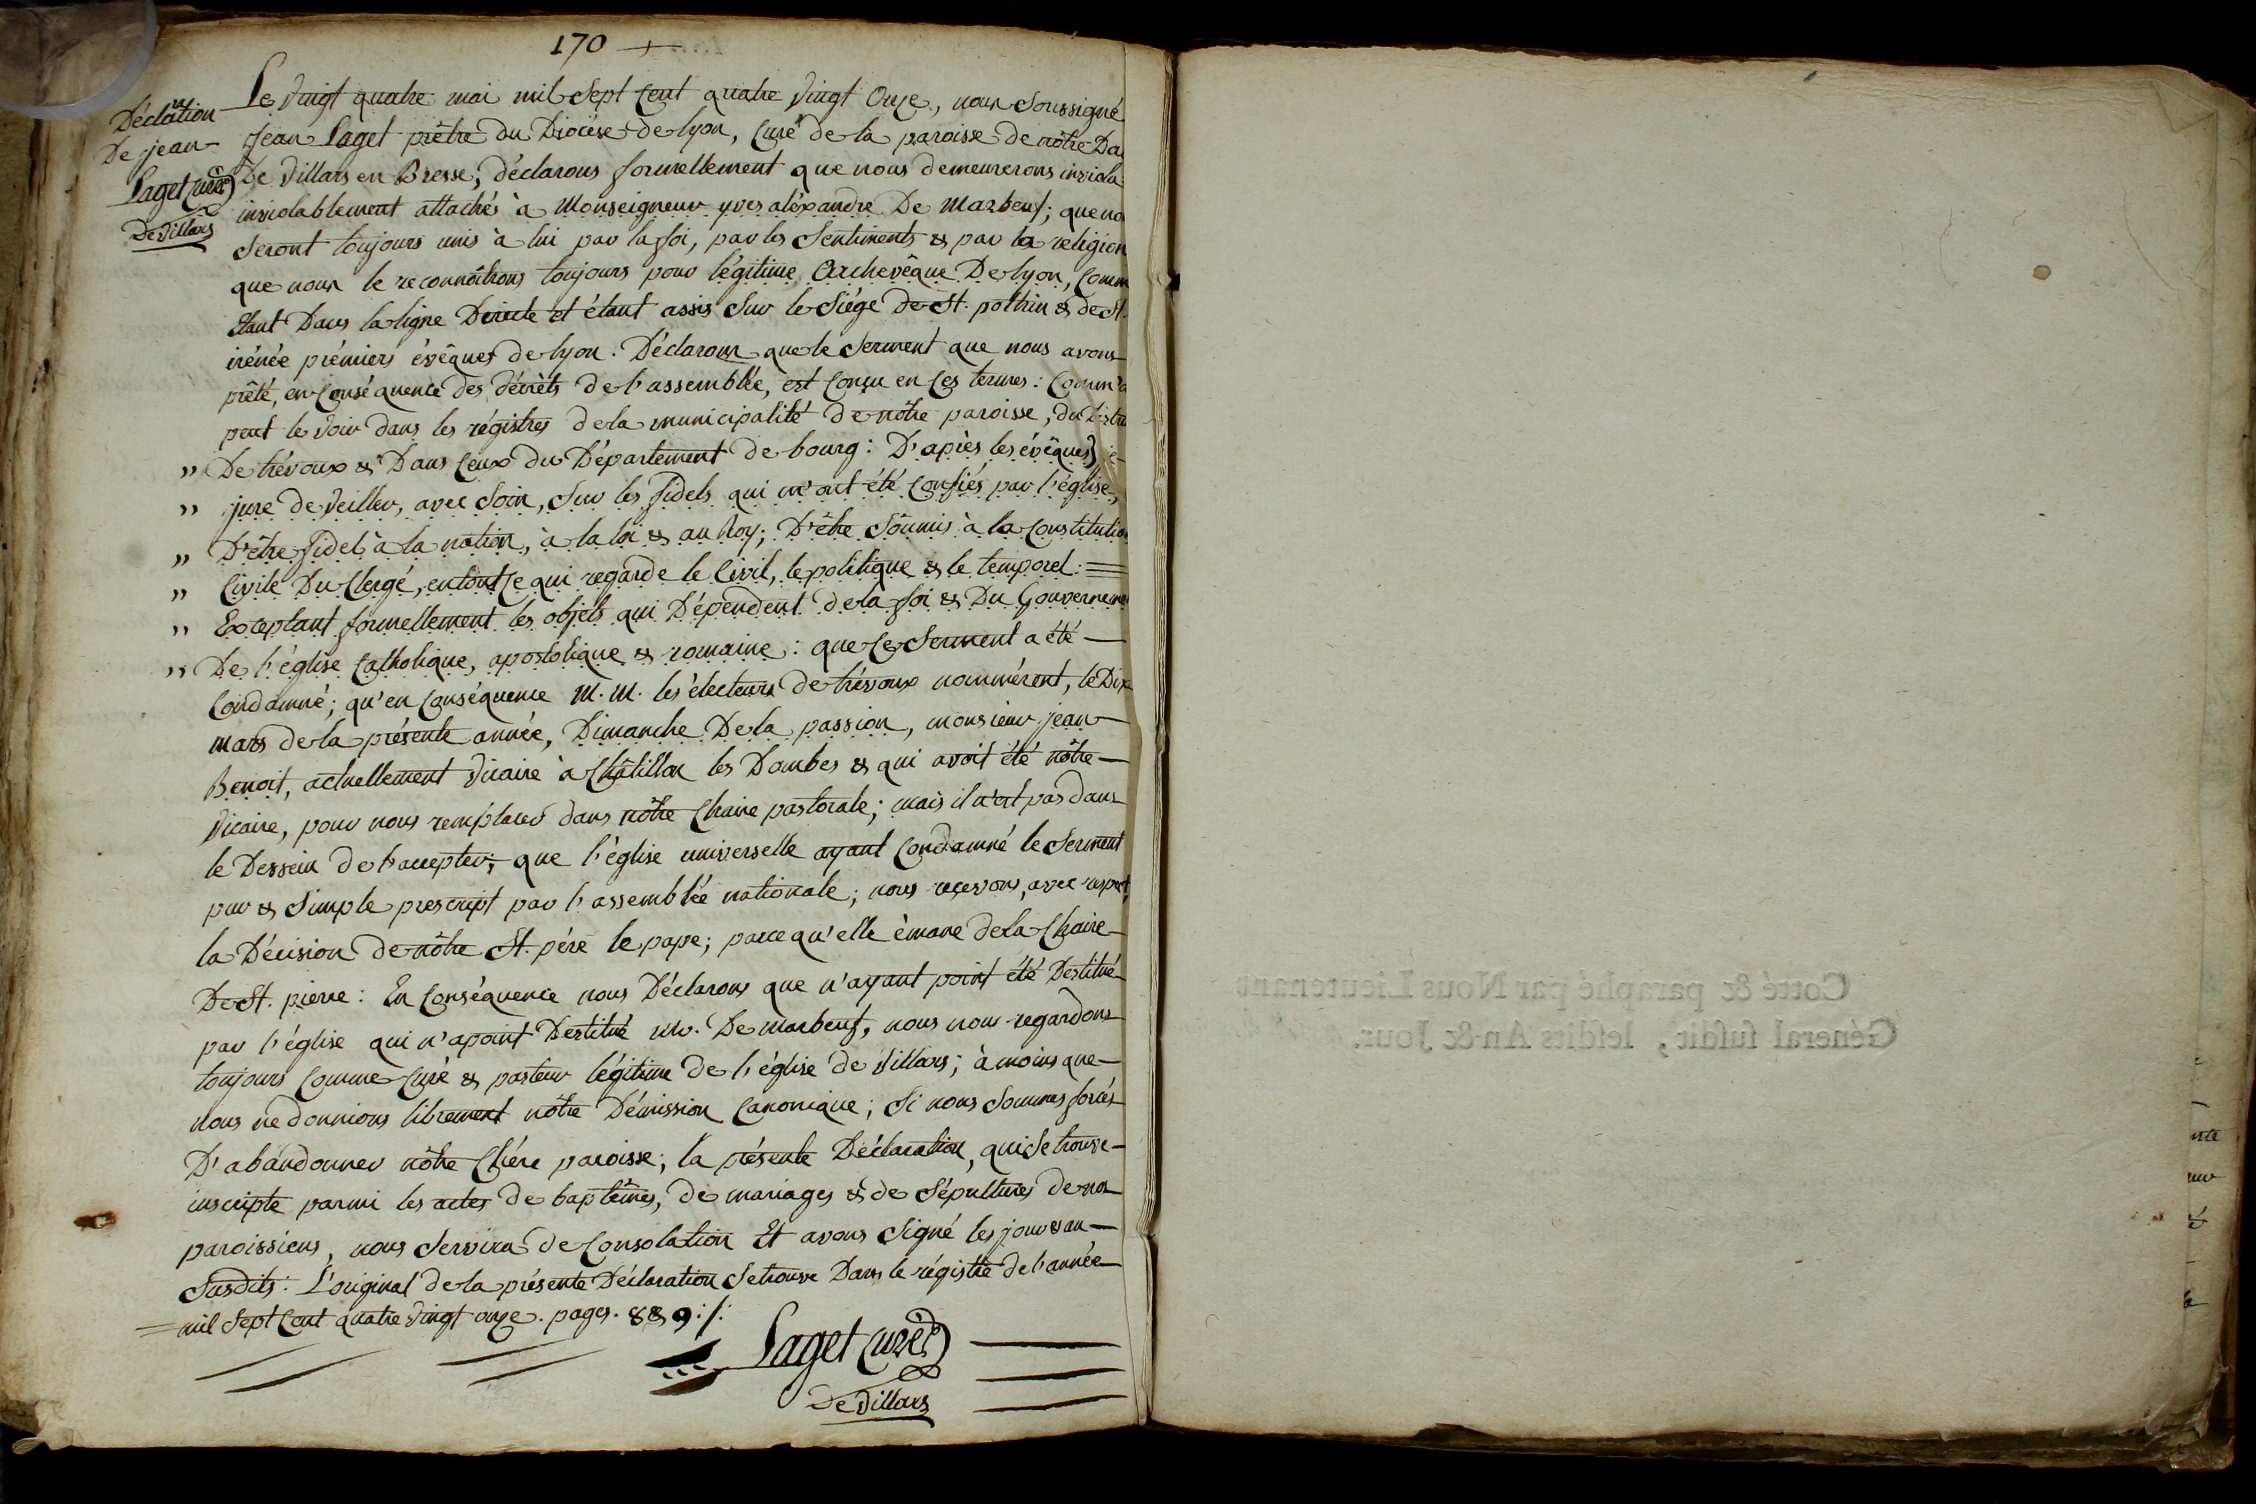 170
Déclãtion
De jean
Laget Curé
De Villars
Le Vingt quatre mai mil Sept Cent quatre Vingt Onze, nous Soussigné
Jean Laget prêtre du Diocèse de lyon, Curé de la paroisse de nôtre Da
De Villars en Bresse, déclarons formellement que nous demeurerons inviola
inviolablement attachés à Monseigneur yves aléxandre De Marbeuf; que no
Seront toujours unis à lui par la foi, par les Sentiments & par la religion
que nous le reconnoîtrons toujours pour légitime Archevêque De lyon, Comm
Etant Dans la ligne Directe et étant assis Sur le Siége de St. pothin & de St.
irénée prémiers évêques de lyon. Déclarons que le Serment que nous avons
prêté, en Conséquence des décrèts de l'assemblée, est Conçu en Ces termes: Comm'o
peut le Voir dans les régistres de la municipalité de nôtre paroisse, du District
" De trévoux & Dans Ceux du Département de bourg: D'après les évêques) je
" jure de Veiller, avec Soin, Sur les fidels qui m'ont été Confiés par l'église,
" D'être fidel à la nation, à la loi & au Roy; D'être Soumis à la Constitution
" Civile Du Clergé, en tout Ce qui regarde le Civil, le politique & le temporel:
" Exceptant formellement les objets qui Dépendent de la foi & Du Gouvernemen
" De l'église Catholique, apostolique & romaine: que Ce Serment a été
Condamné; qu'en Conséquence M. M. les électeurs de trévoux nommérent, le Dix
mars de la présente année, Dimanche De la passion, monsieur jean
Benoit, actuellement Vicaire à Châtillon les Dombes & qui avoit été nôtre
Vicaire, pour nous remplacer dans nôtre Chaire pastorale; mais il n'est pas dans
le Dessein de l'accepter; que l'église universelle ayant Condamné le Serment
pur & Simple prescript par l'assemblée nationale; nous reçevons, avec respect,
la Décision de nôtre St. pére le pape; parce qu'elle émane de la Chaire
De St. pierre: En Conséquence nous Déclarons que n'ayant point été Destitué
par l'église qui n'a point Destitué Mr. De Marbeuf, nous nous regardons
toujours Comme Curé & pasteur légitime de l'église de Villars; à moins que
nous ne donnions librement nôtre Démission Canonique; Si nous Sommes forcés
D'abandonner nôtre Chére paroisse; la présente Déclaration, qui Se trouve
inscripte parmi les actes de baptêmes, de mariages & de Sépultures de nos
paroissiens, nous Servira de Consolation Et avons Signé les jour & an
Susdits: L'original de la présente Déclaration Se trouve Dans le régistre de l'année
mil Sept Cent quatre Vingt onze. pages. 8 & 9 ./.
Laget Curé
De Villars
Cotté & paraphé par Nous Lieutenant
Général susdit, lesdits An & Jour.